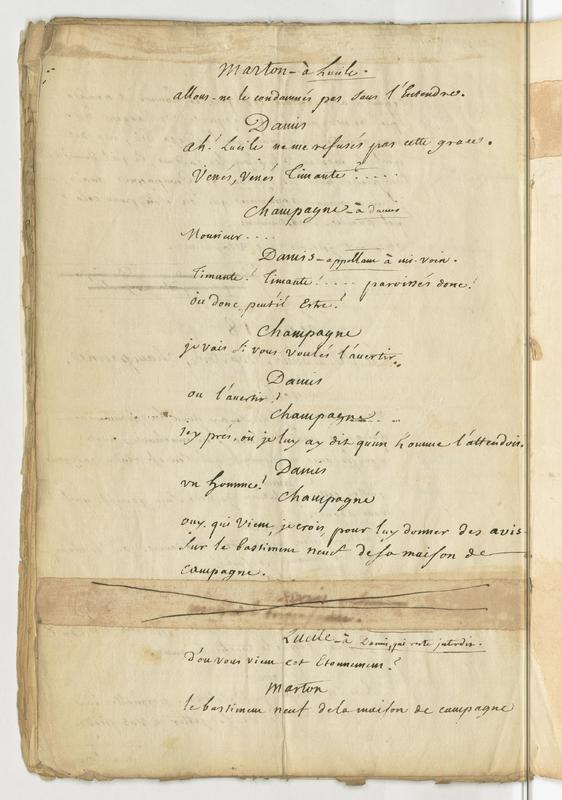 Marton - à Lucile.
allons - ne le condamnés pas sans l'Entendre.
Damis
ah! Lucile ne me refusés pas cette grace.
Venés, venés Timante! ....
Champagne - à damis
Monsieur ....
Damis - appellant à mi-voix.
Timante! Timante! .... paroissés donc!
où donc peut il Estre?
Champagne
je vais si vous voulés l'avertir.
Damis
ou l'avertir?
Champagne ...
icy près, où je luy ay dit qu'un homme l'attendoit.
Damis
un homme!
Champagne
ouy, qui vient, je crois, pour luy donner des avis
sur le bastiment neuf de sa maison de
campagne.
Lucile - à Damis, qui reste interdit.
d'où vous vient cet Etonnement?
Marton
le bastiment neuf de la maison de campagne